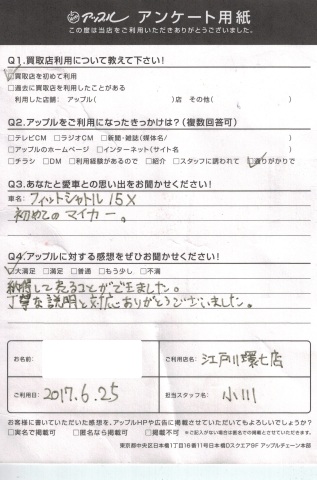 アップル アンケート用紙
この度は当店をご利用いただきありがとうございました。
Q1.買取店利用について教えて下さい!
☑買取店を初めて利用
□過去に買取店を利用したことがある
利用した店舗: アップル( )店 その他( )
Q2.アップルをご利用になったきっかけは?(複数回答可)
□テレビCM □ラジオCM □新聞・雑誌(媒体名/ )
□アップルのホームページ □インターネット(サイト名 )
□チラシ □DM □利用経験があるので □紹介 □スタッフに誘われて ☑通りがかりで
Q3.あなたと愛車との思い出をお聞かせください!
車名: フィットシャトル 15X
初めてのマイカー。
Q4.アップルに対する感想をぜひお聞かせください!
☑大満足 □満足 □普通 □もう少し □不満
納得して売ることができました。
丁寧な説明と対応ありがとうございました。
お名前:
ご利用店名: 江戸川環七店
ご利用日: 2017.6.25
担当スタッフ名: 小川
お客様に書いていただいた感想を、アップルHPや広告に掲載させていただいてもよろしいでしょうか?
□実名で掲載可 □匿名なら掲載可 □掲載不可 ※ご記入がない場合は匿名での掲載とさせていただきます。
東京都中央区日本橋1丁目16番11号日本橋Dスクエア9F アップルチェーン本部